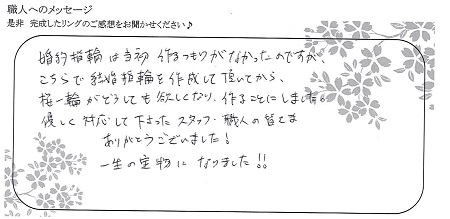 職人へのメッセージ
是非 完成したリングのご感想をお聞かせください♪
婚約指輪は当初 作るつもりがなかったのですが、
こちらで結婚指輪を作成して頂いてから、
桜一輪がどうしても欲しくなり、作ることにしました。
優しく対応して下さったスタッフ・職人の皆さま
ありがとうございました!
一生の宝物になりました!!